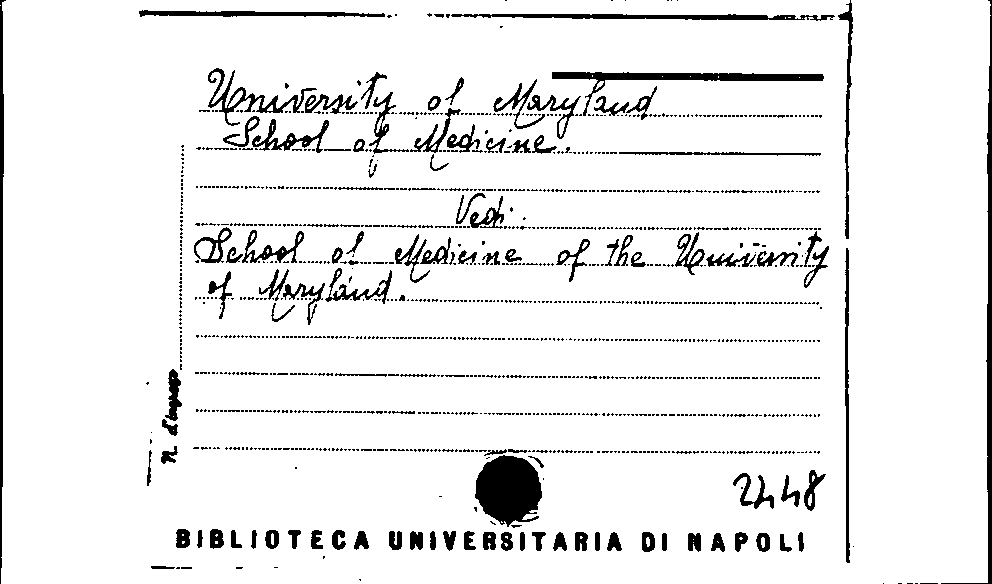 University of Maryland
School of Medicine.
Vedi:
School of Medicine of the University
of Maryland.
N. d'ingresso
2448
BIBLIOTECA UNIVERSITARIA DI NAPOLI